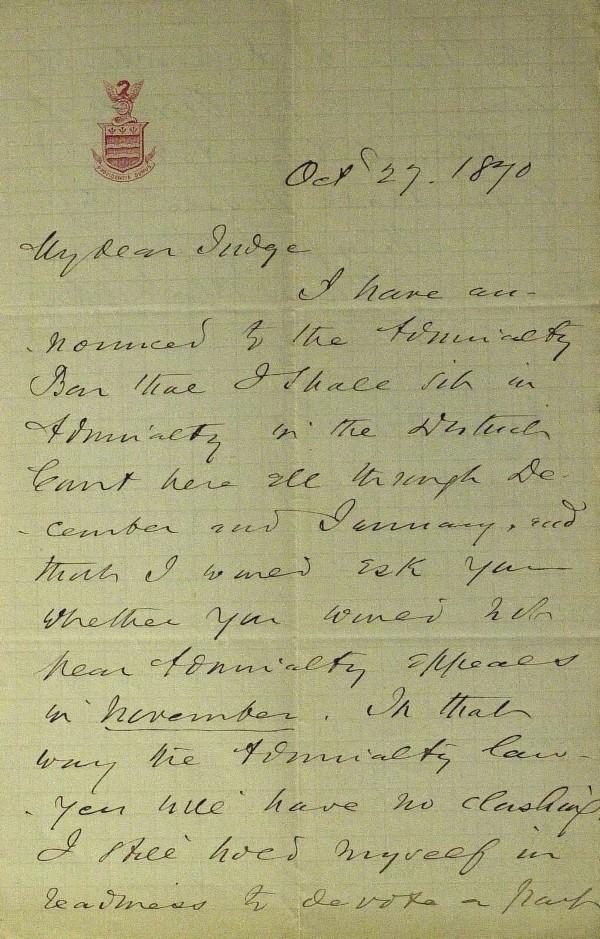 PROVIDENTIA
Oct 27. 1870
My dear Judge
I have an-
nounced to the Admiralty
Bar that I shall sit in
Admiralty in the District
Court here all through De-
cember and January, and
that I would ask you
whether you would not
hear Admiralty appeals
in November. In that
way the Admiralty law-
yers will have no clashing.
I still hold myself in
readiness to devote a part